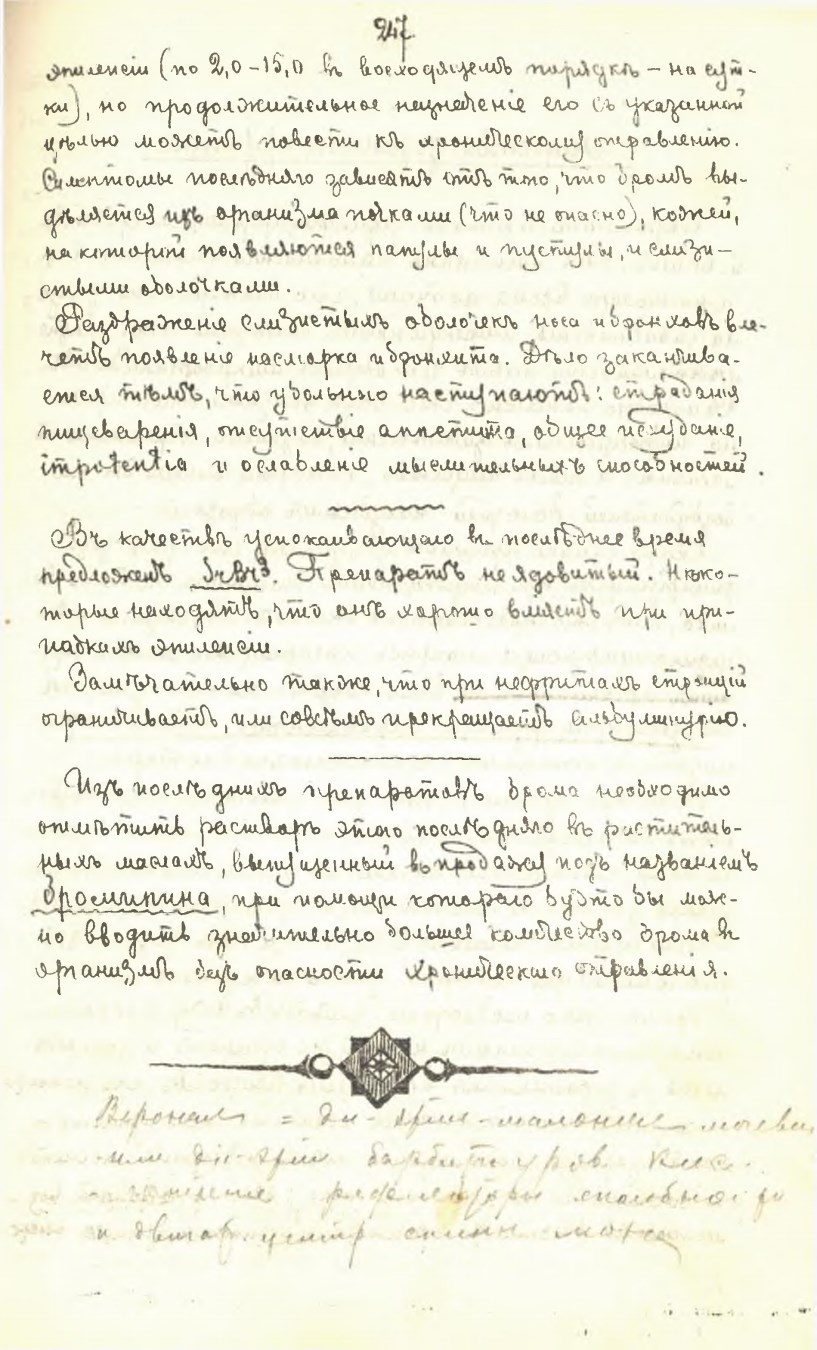 247
эпилепсіи (по 2,0–15,0 въ восходящемъ порядкѣ – на сут-
ки), но продолжительное назначеніе его съ указанной
цѣлью можетъ повести къ хроническому отравленію.
Симптомы послѣдняго зависятъ отъ того, что бромъ вы-
дѣляется изъ организма почками (что не опасно), кожей,
на которой появляются папулы и пустулы, и слизи-
стыми оболочками.
Раздраженіе слизистыхъ оболочекъ носа и бронховъ вле-
четъ появленіе насморка и бронхита. Дѣло заканчива-
ется тѣмъ, что у больного наступаютъ: страданія
пищеваренія, отсутствіе аппетита, общее исхуданіе,
impotentia и ослабленіе мыслительныхъ способностей.
Въ качествѣ успокаивающаго въ послѣднее время
предложенъ SrBr². Препаратъ не ядовитый. Нѣко-
торые находятъ, что онъ хорошо вліяетъ при при-
падкахъ эпилепсіи.
Замѣчательно также, что при нефритахъ стронцій
ограничиваетъ, или совсѣмъ прекращаетъ альбуминурію.
Изъ послѣднихъ препаратовъ брома необходимо
отмѣтить растворъ этого послѣдняго въ раститель-
ныхъ маслахъ, выпущенный въ продажу подъ названіемъ
Бромипина, при помощи котораго будто бы мож-
но вводить значительно большее количество брома въ
организмъ безъ опасности хроническаго отравленія.
Веронал = ди-этил-малонил мочевин
или ди-этил барбитуров кис.
рефлекторн способности
и двигат. центр спинн мозга